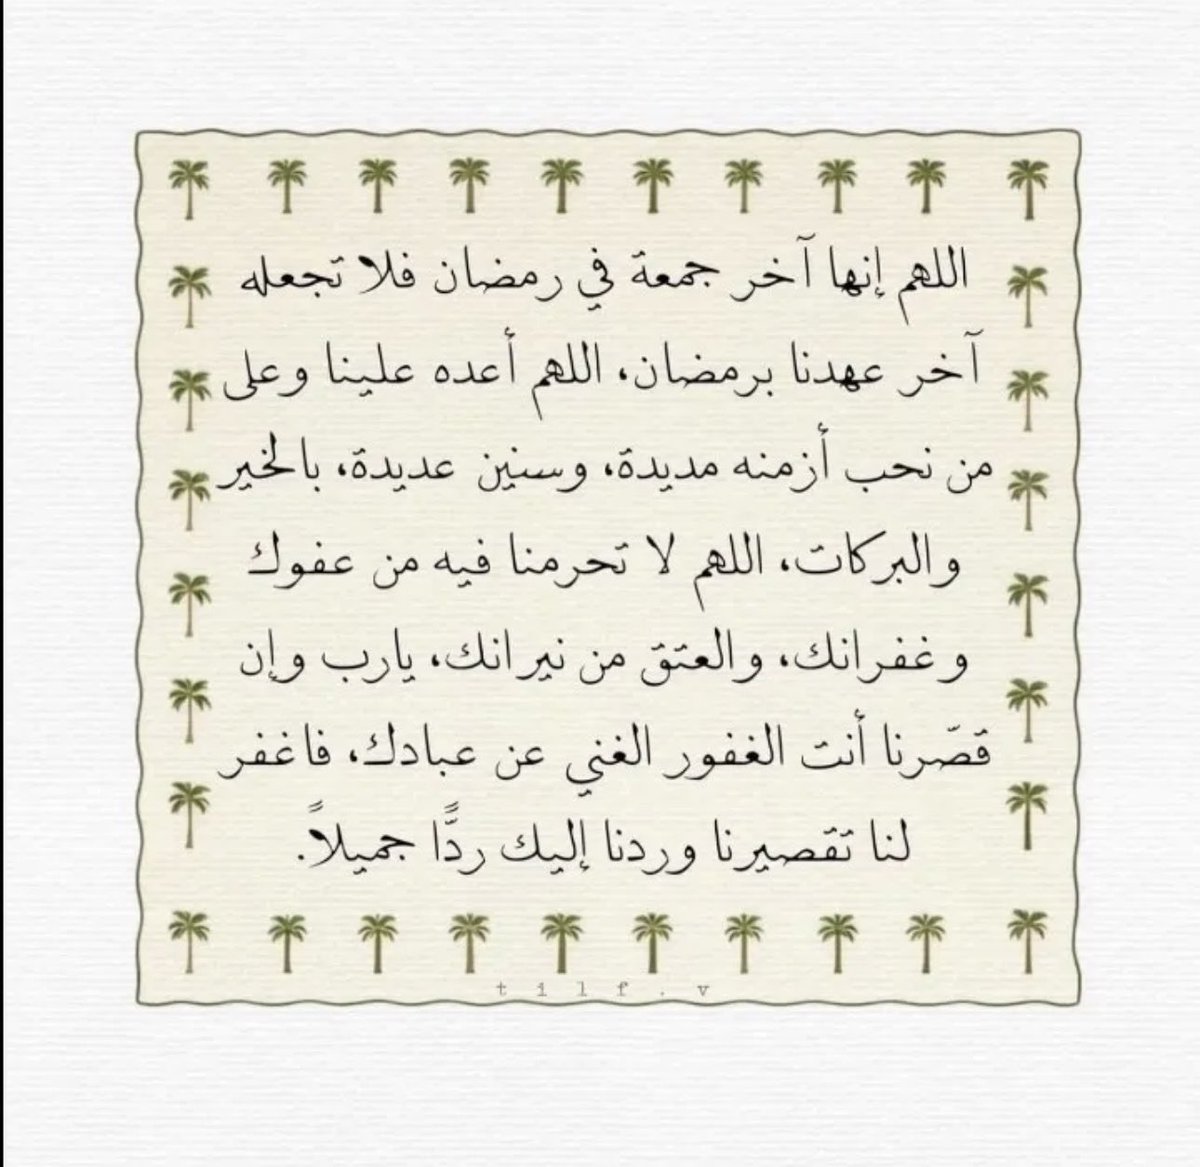 اللهم إنها آخر جمعة في رمضان فلا تجعله
آخر عهدنا برمضان، اللهم أعده علينا وعلى
من نحب أزمنه مديدة، وسنين عديدة، بالخير
والبركات، اللهم لا تحرمنا فيه من عفوك
وغفرانك، والعتق من نيرانك، يارب وإن
قصّرنا أنت الغفور الغني عن عبادك، فاغفر
لنا تقصيرنا وردنا إليك ردًّا جميلاً.
t i l f . v